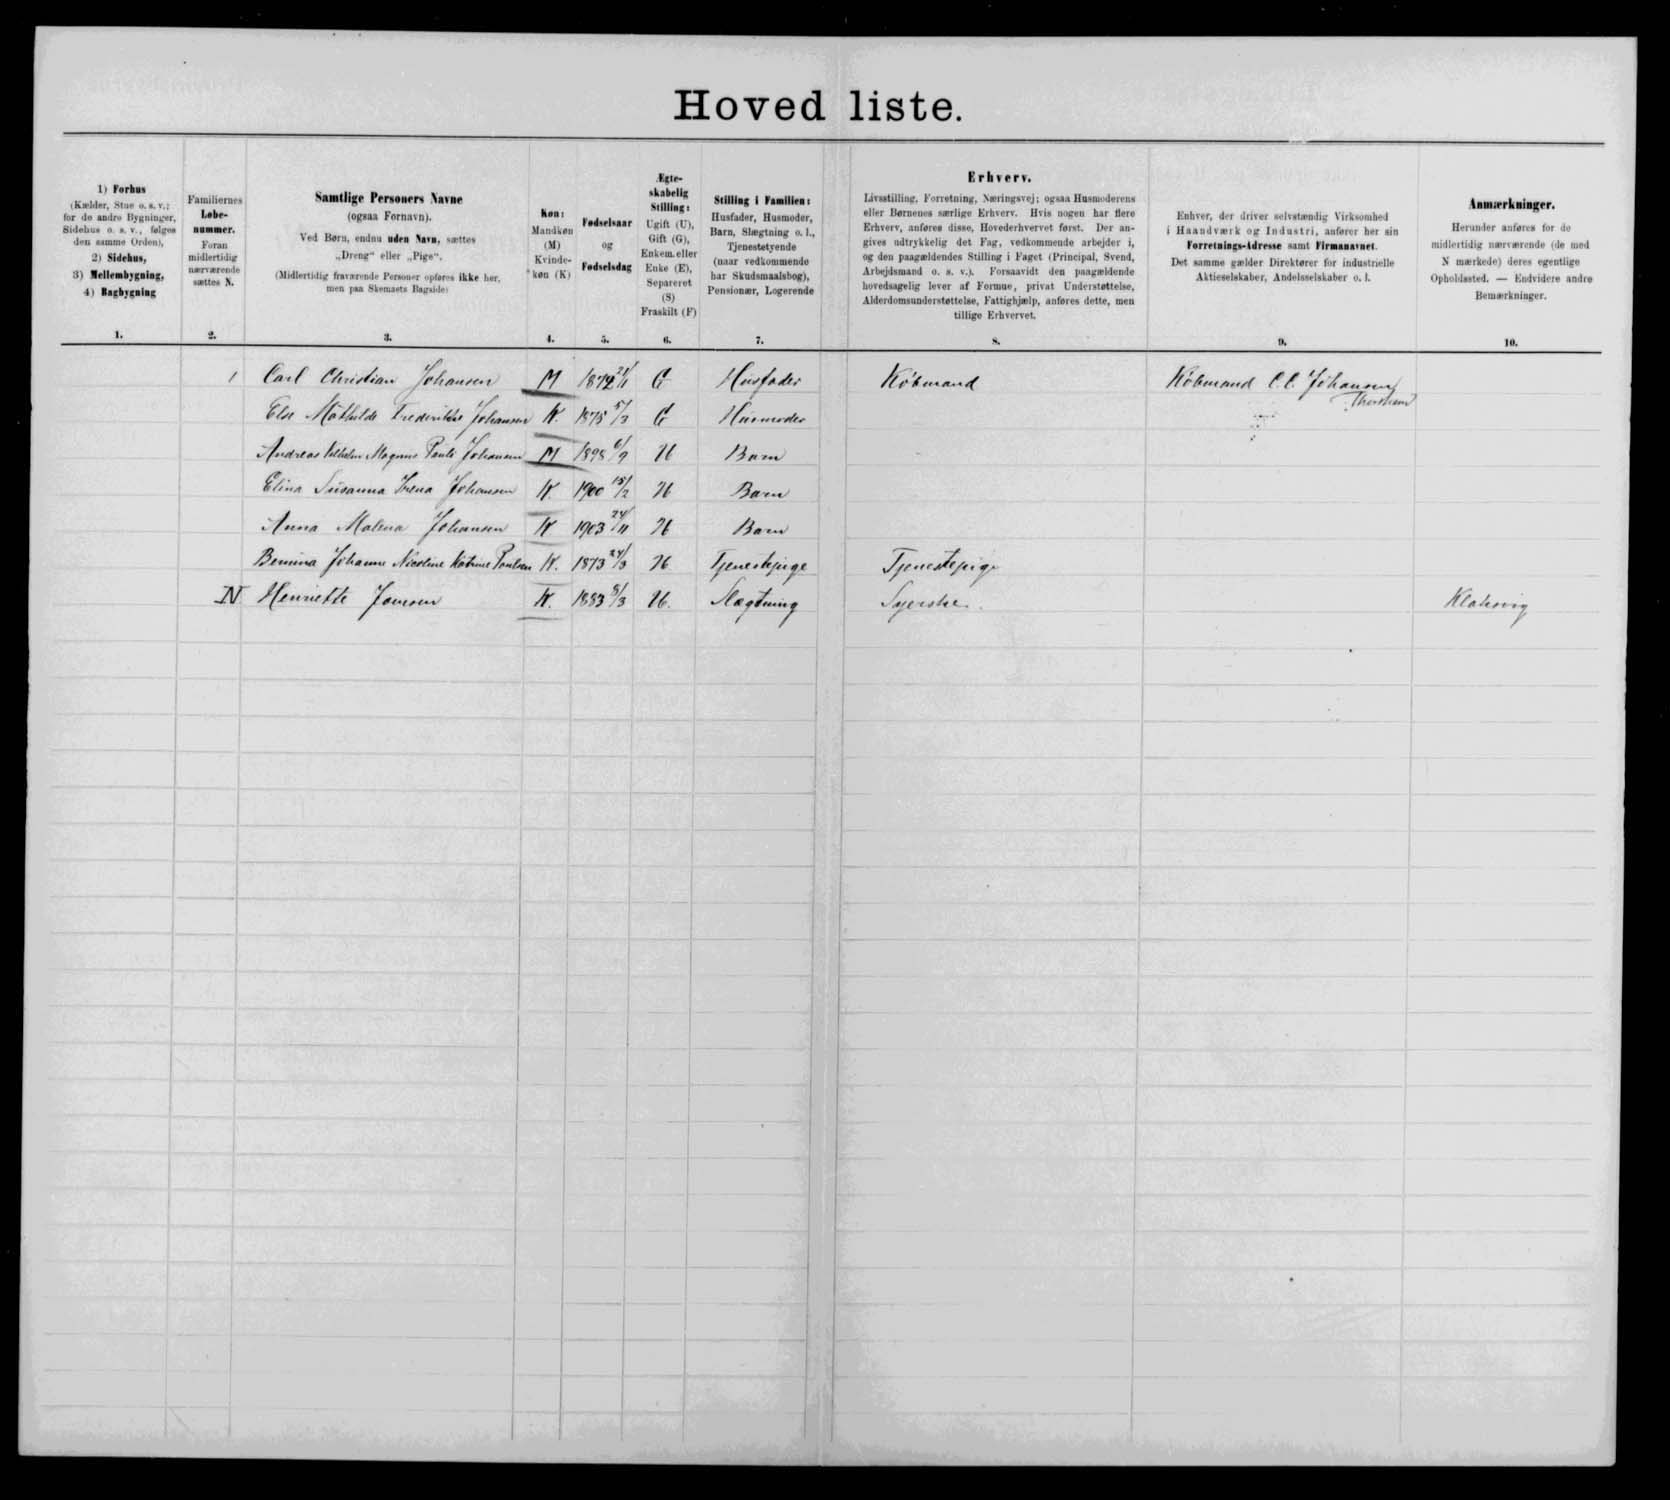 Hoved liste.
1) Forhus
(Kælder, Stue o. s. v.;
for de andre Bygninger,
Sidehus o. s. v., følges
den samme Orden),
2) Sidehus,
3) Mellembygning,
4) Bagbygning
Familiernes
Løbe-
nummer.
Foran
midlertidig
nærværende
sættes N.
Samtlige Personers Navne
(ogsaa Fornavn).
Ved Børn, endnu uden Navn, sættes
„Dreng“ eller „Pige“.
(Midlertidig fraværende Personer opføres ikke her,
men paa Skemaets Bagside)
Køn:
Mandkøn
(M)
Kvinde-
køn (K)
Fødselsaar
og
Fødselsdag
Ægte-
skabelig
Stilling:
Ugift (U),
Gift (G),
Enkem. eller
Enke (E),
Separeret
(S)
Fraskilt (F)
Stilling i Familien:
Husfader, Husmoder,
Barn, Slægtning o. l.,
Tjenestetyende
(naar vedkommende
har Skudsmaalsbog),
Pensionær, Logerende
Erhverv.
Livsstilling, Forretning, Næringsvej; ogsaa Husmoderens
eller Børnenes særlige Erhverv. Hvis nogen har flere
Erhverv, anføres disse, Hovederhvervet først. Der an-
gives udtrykkelig det Fag, vedkommende arbejder i,
og den paagældendes Stilling i Faget (Principal, Svend,
Arbejdsmand o. s. v.). Forsaavidt den paagældende
hovedsagelig lever af Formue, privat Understøttelse,
Alderdomsunderstøttelse, Fattighjælp, anføres dette, men
tillige Erhvervet.
Enhver, der driver selvstændig Virksomhed
i Haandværk og Industri, anfører her sin
Forretnings-Adresse samt Firmanavnet.
Det samme gælder Direktører for industrielle
Aktieselskaber, Andelsselskaber o. l.
Anmærkninger.
Herunder anføres for de
midlertidig nærværende (de med
N mærkede) deres egentlige
Opholdssted. — Endvidere andre
Bemærkninger.
1. 2. 3. 4. 5. 6. 7. 8. 9. 10.
1 Carl Christian Johansen M 1872 21/1 G Husfader Købmand Købmand C. C. Johansen
Thorshavn
Else Mathilde Frederikke Johansen K. 1875 5/3 G Husmoder
Andreas Vilhelm Magnus Pauli Johansen M 1898 6/9 U Barn
Elina Susanna Johansen K. 1900 15/2 U Barn
Anna Malena Johansen K 1903 24/11 U Barn
Johanne Nicoline Katrine Poulsen K. 1873 24/3 U Tjenestepige Tjenestepige
N Henriette Joensen K. 1883 8/3 U. Slægtning Syerske. Klaksvig